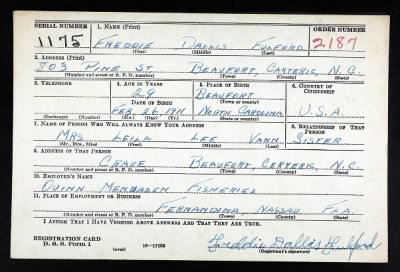 SERIAL NUMBER 1. NAME (Print) ORDER NUMBER
1175 FREDDIE DALLIS FULFORD 2187
(First) (Middle) (Last)
2. ADDRESS (Print)
803 PINE ST BEAUFORT, CARTERIC, N.C.
(Number and street or R. F. D. number) (Town) (County) (State)
3. TELEPHONE 4. AGE IN YEARS 5. PLACE OF BIRTH 6. COUNTRY OF CITIZENSHIP
29 BEAUFORT
DATE OF BIRTH (Town or county)
FEB 26 1911 NORTH CAROLINA U.S.A.
(Exchange) (Number) (Mo.) (Day) (Yr.) (State or country)
7. NAME OF PERSON WHO WILL ALWAYS KNOW YOUR ADDRESS 8. RELATIONSHIP OF THAT PERSON
MRS LEILA LEE VANN SISTER
(Mr., Mrs., Miss) (First) (Middle) (Last)
9. ADDRESS OF THAT PERSON
BEAUFORT, CERTERIC, N.C.
(Number and street or R. F. D. number) (Town) (County) (State)
10. EMPLOYER'S NAME
QUINN MENHADEN FISHERIES
11. PLACE OF EMPLOYMENT OR BUSINESS
FERNANDINA, NASSAU FLA
(Number and street or R. F. D. number) (Town) (County) (State)
I AFFIRM THAT I HAVE VERIFIED ABOVE ANSWERS AND THAT THEY ARE TRUE.
REGISTRATION CARD
D. S. S. Form 1 (over) 16—17105 Freddie Dallis Fulford
(Registrant's signature)